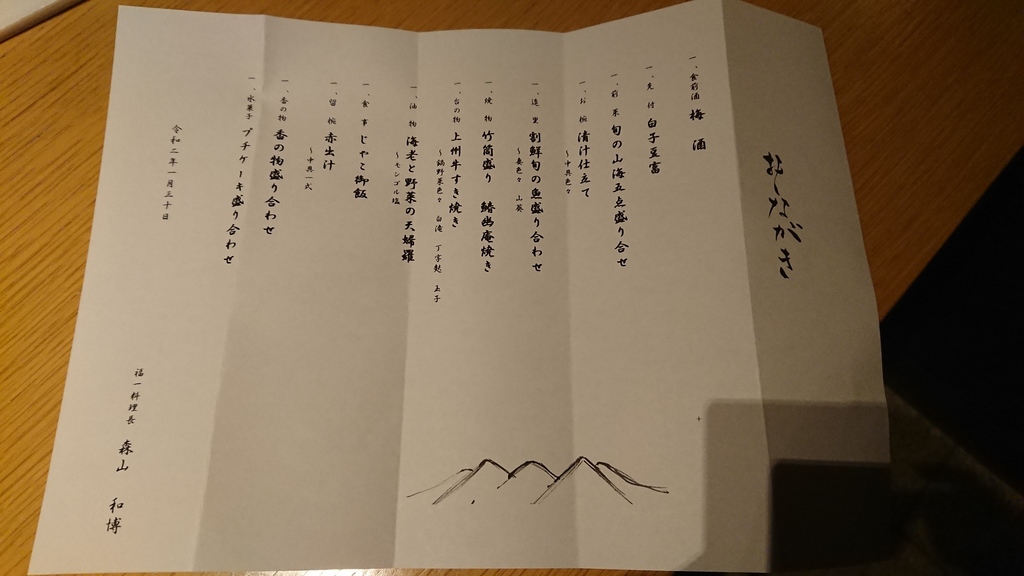 おしながき
一、食前酒 梅酒
一、先付 白子豆富
一、前菜 旬の山海五点盛り合せ
一、お椀 清汁仕立て
～中具色々
一、造里 割鮮旬の魚盛り合わせ
～妻色々 山葵
一、焼物 竹筒盛り 鰆幽庵焼き
一、台の物 上州牛すき焼き
～鍋野菜色々 白滝 丁字麩 玉子
一、油物 海老と野菜の天婦羅
～モンゴル塩
一、食事 じゃこ御飯
一、留椀 赤出汁
～中具一式
一、香の物 香の物盛り合わせ
一、水菓子 プチケーキ盛り合わせ
令和二年一月三十日
福一料理長 森山 和博